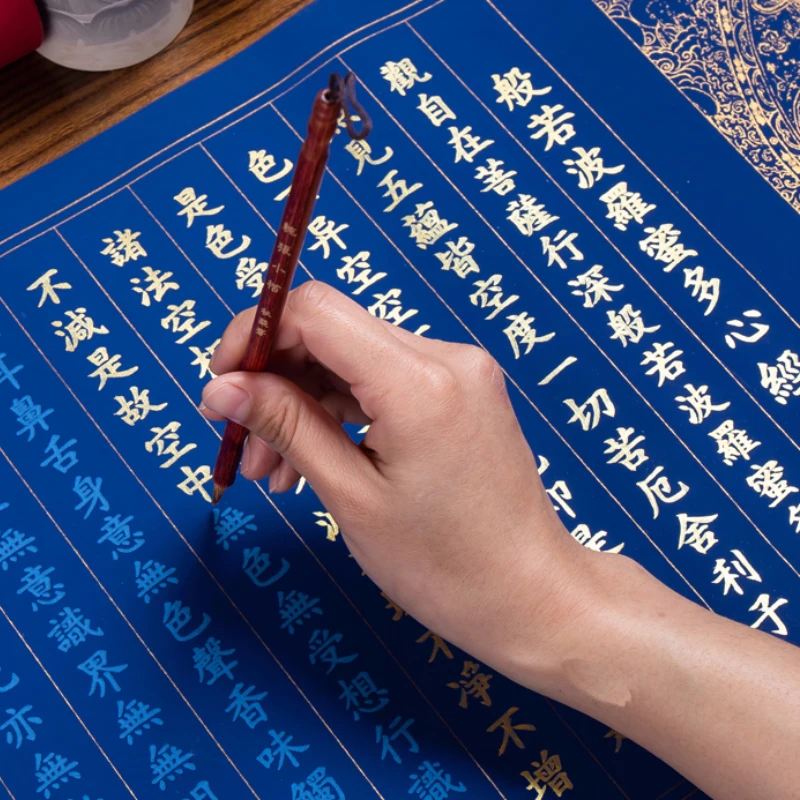 般若波羅蜜多心經
觀自在菩薩行深般若波羅蜜
見五蘊皆空度一切苦厄舍利子
色异空空是
是色受
諸法空不淨不增
不減是故空中無色無受想行識
耳鼻舌身意無色聲香味觸
無意識界無無
亦無